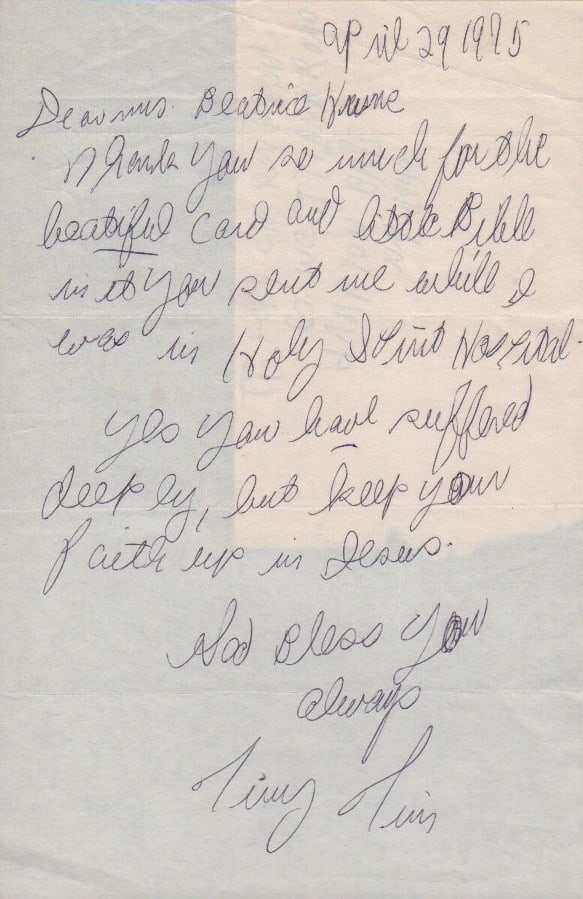 April 29 1975
Dear mrs. Beatrice
Thank you so much for the
beatiful card and little Bible
in it you sent me while I
was in Holy Spirit Hospital.
Yes you have suffered
deeply, but keep your
Faith up in Jesus.
God Bless You
always
Tiny Tim